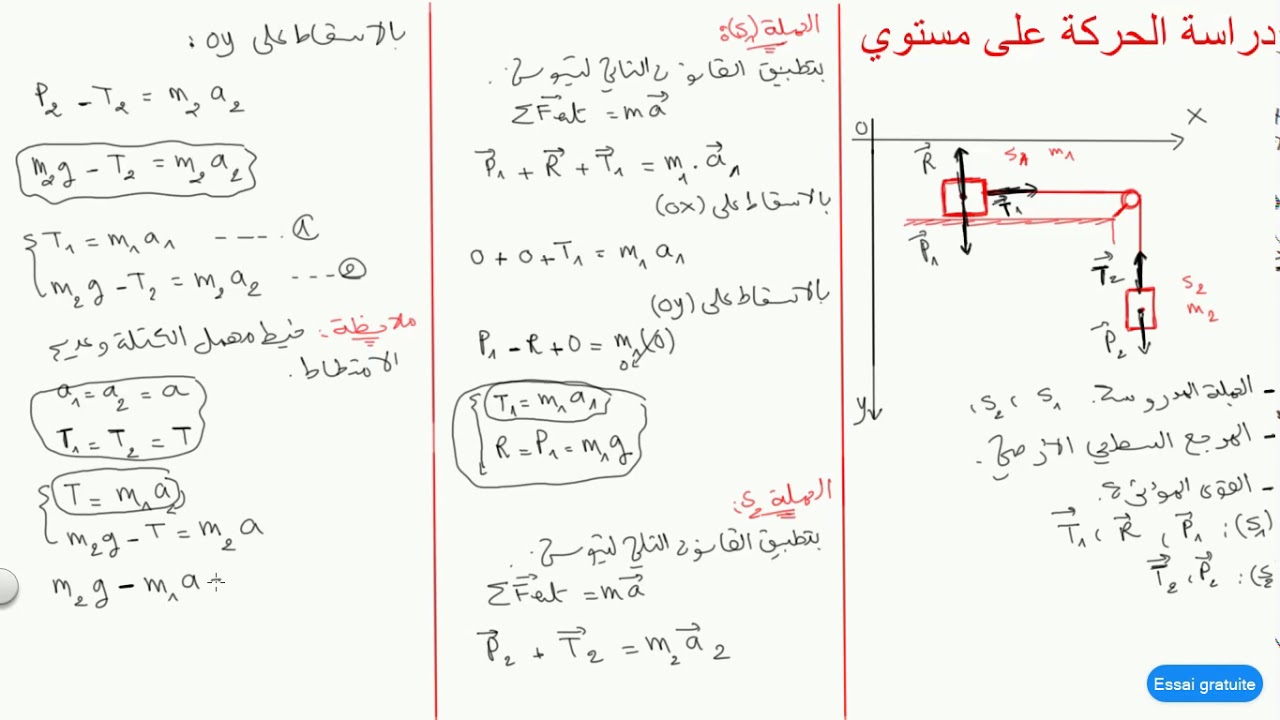 دراسة الحركة على مستوي
O
X
R⃗
S₁ m₁
T⃗₁
P⃗₁
T⃗₂
S₂
m₂
P⃗₂
y
- الجملة المدروسة. S₁ ، S₂ ،
- المرجع السطحي الأرضي.
- القوى المؤثرة.
(S₁) : P⃗₁ ، R⃗ ، T⃗₁
(S₂) : P⃗₂ ، T⃗₂
الجملة (S₁):
بتطبيق القانون الثاني لنيوتن.
ΣF⃗ext = ma⃗
P⃗₁ + R⃗ + T⃗₁ = m₁ . a⃗₁
بالاسقاط على (ox)
0 + 0 + T₁ = m₁ a₁
بالاسقاط على (oy)
P₁ - R + 0 = m₁(0)
0
T₁ = m₁ a₁
R = P₁ = m₁g
الجملة S₂:
بتطبيق القانون الثاني لنيوتن.
ΣF⃗ext = ma⃗
P⃗₂ + T⃗₂ = m₂ a⃗₂
بالاسقاط على oy :
P₂ - T₂ = m₂ a₂
m₂g - T₂ = m₂ a₂
T₁ = m₁ a₁ ---- ①
m₂g - T₂ = m₂ a₂ --- ②
ملاحظة: خيط مهمل الكتلة وعديم
الامتطاط.
a₁ = a₂ = a
T₁ = T₂ = T
T = m₁ a
m₂g - T = m₂ a
m₂g - m₁ a
Essai gratuite